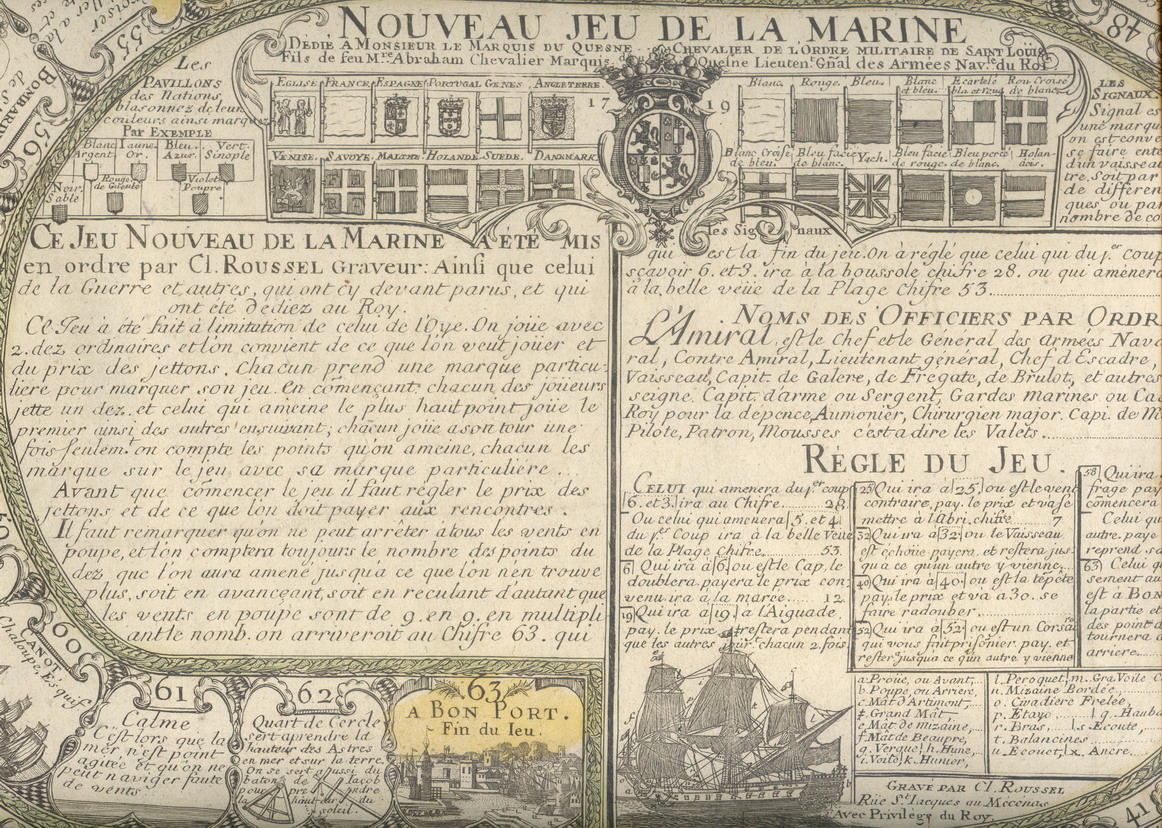 NOUVEAU JEU DE LA MARINE
DEDIE A MONSIEUR LE MARQUIS DU QUESNE CHEVALIER DE L'ORDRE MILITAIRE DE SAINT Loüis
Fils de feu M.re Abraham Chevalier Marquis du Quesne Lieuten.t Gñal des Armées Nav.les du Roy.
17 19
Les
PAVILLONS
des Nations
blasonnez de leurs
couleurs ainsi marquez
Par EXEMPLE
Blanc Iaune Bleu Vert
Argent Or. Azur. Sinople
Noir Rouge Violet
Sable de Gueule Pourpre
EGLISE FRANCE ESPAGNE PORTUGAL GENES ANGLETERRE
VENISE. SAVOYE. MALTHE. HOLANDE. SUEDE. DANMARK.
Blanc. Rouge. Bleu. Blanc et bleu. Ecartelé bla et rouge Rou. Croisé de blanc
Blanc Croisé de bleu. Bleu facié Yach. Bleu facié de rouge. Bleu percé de blanc. Holandois.
LES
SIGNAUX
Signal es
une marqu
on est conve
se faire ente
d'un vaisseau
tre. Soit par
de differen
ques ou par
nombre de co
les Signaux
CE JEU NOUVEAU DE LA MARINE A ÉTÉ MIS
en ordre par Cl. ROUSSEL Graveur: Ainsi que celui
de la Guerre et autres, qui ont cy devant parus, et qui
ont été dédiez au Roy.
Ce Jeu à été fait à l'imitation de celui de l'Oye. On joüe avec
2. dez ordinaires et l'on convient de ce que l'on veut joüer et
du prix des jettons. Chacun prend une marque particu-
liere pour marquer son jeu. En començant chacun des joüeurs
jette un dez. et celui qui ameine le plus haut point joüe le
premier ainsi des autres ensuivant; chacun joüe a son tour une
fois seulem.t on compte les points qu'on ameine, chacun les
marque sur le jeu avec sa marque particuliere...
Avant que comencer le jeu il faut régler le prix des
jettons et de ce que l'on doit payer aux rencontres.
Il faut remarquer qu'on ne peut arrêter a tous les vents en
poupe, et l'on comptera toujours le nombre des points du
dez que l'on aura amené jusqu'à ce que l'on n'en trouve
plus, soit en avançeant, soit en réculant d'autant que
les vents en poupe sont de 9. en 9. en multipli
ant le nomb. on arriveroit au Chifre 63. qui
qui est la fin du jeu. On à règlé que celui qui du p.er coup
sçavoir 6. et 3. ira à la boussole chifre 28. ou qui amènera
à la belle veüe de la Plage Chifre 53.
NOMS DES OFFICIERS PAR ORDR
L'Amiral, est le Chef et le Général des Armées Nava
ral, Contre Amiral, Lieutenant général, Chef d'Escadre,
Vaisseau, Capit. de Galere, de Fregate, de Brulot, et autres
seigne. Capit. d'arme ou Sergent, Gardes Marines ou Ca
Roy pour la dépence, Aumonier, Chirurgien major. Capi. de M
Pilote, Patron, Mousses c'est a dire les Valets.
REGLE DU JEU.
CELUI qui amenera du p.er coup
6. et 3. ira au Chifre 28
Ou celui qui amenera 5. et 4
du p.r Coup ira à la belle Veue
de la Plage Chifre 53.
6 Qui ira à 6 ou est le Cap, le
doublera, payera le prix con-
venu, ira à la marée 12.
19 Qui ira à 19 a l'Aiguade
pay. le prix restera pendant
que les autres jour.t chacun 2. fois.
25 Qui ira à 25 ou est le vent
contraire, pay. le prix et va se
mettre à l'Abri. chifre 7
32 Qui ira à 32 ou le Vaisseau
est échoüe payera, et restera jus-
qu'a ce qu'un autre y vienne
40 Qui ira à 40. ou est la tépête
pay. le prix et va a 30. se
faire radouber
52 Qui ira à 52 ou est un Corsaire
qui vous fait prisonier, pay. et
rester jusqua ce q'un autre y vienne
58 Qui ira
frage pay
comencera
Celui qu
autre. paye
reprend sa
63 Celui q
sement au
est à BON
la partie et
des point a
tournera d
arriere.
a. Proüe, ou Avant.
b. Poupe, ou Arriere,
c. Mât d'Artimont,
d. Grand Mât,
e. Mât de Mizaine,
f. Mât de Beaupré,
g. Vergue, h. Hune,
i. Voile, k. Hunier,
l. Peroquet, m. Gra Voile C
n. Mizaine Bordée,
o. Civadiere Frelée,
p. Étayo, q. Hauba
r. Bras, s. Ecoute,
t. Balancines
u. Ecouet, x. Ancre.
GRAVÉ PAR Cl. ROUSSEL
Rüe S.t Jacques au Mecenas
Avec Privilège du Roy.
55
56
BOMBARD
60
CANOT
Chaloupe, Esquif
61
Calme
C'est lors que la
mer n'est point
agitée et qu'on ne
peut naviger faute
de vents
62
Quart de Cercle
sert a prendre la
hauteur des Astres
en mer et sur la terre.
On se sert aussi du
baton de Jacob
pour prendre
la hauteur du
soleil.
63
A BON PORT.
Fin du Ieu.
48
41